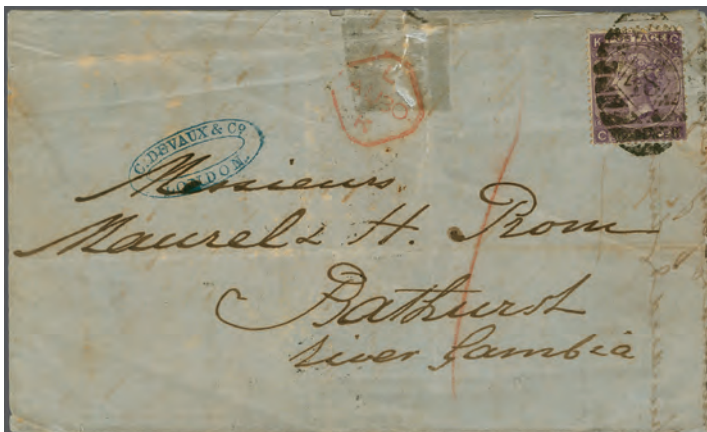 C. DEVAUX & Co.
LONDON.
Messieurs
Maurel & H. Prom
Bathurst
River Gambia
K POSTAGE C
C